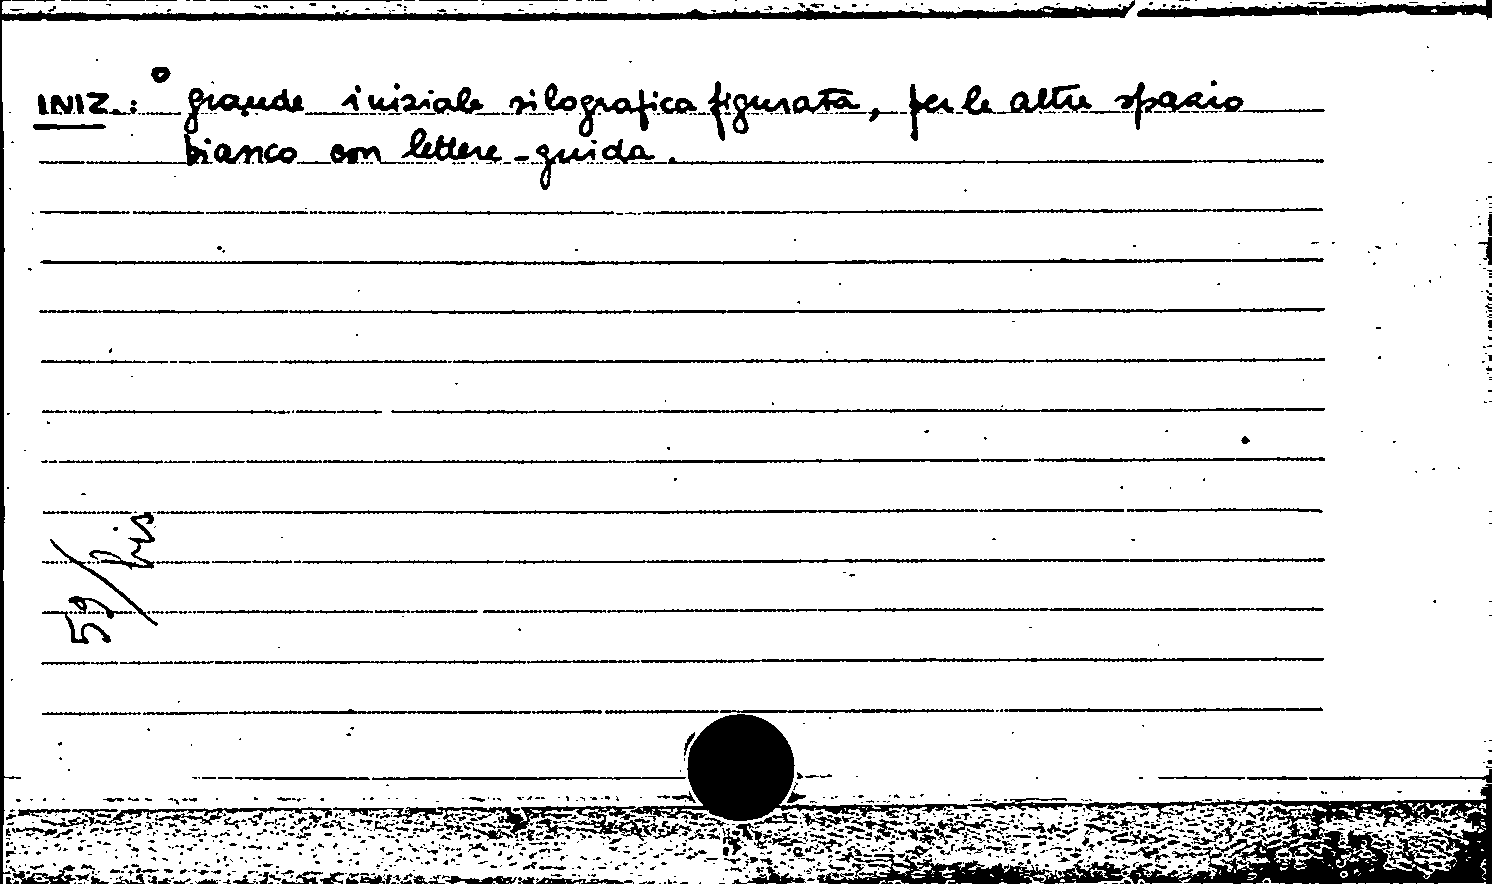 INIZ.: ° grande iniziale silografica figurata, per le altre spazio
bianco con lettere-guida.
59/bis